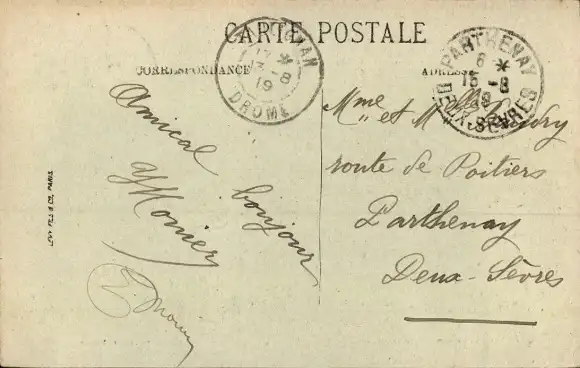 CARTE POSTALE
CORRESPONDANCE
ADRESSE
17 *
13 - 8
19
DROME
PARTHENAY
6 *
15 - 8
19
DEUX-SÈVRES
Amical bonjour
Y Monier
E. Monier
Mme et M
route de Poitiers
Parthenay
Deux-Sèvres
LEVY FILS & Cie, PARIS